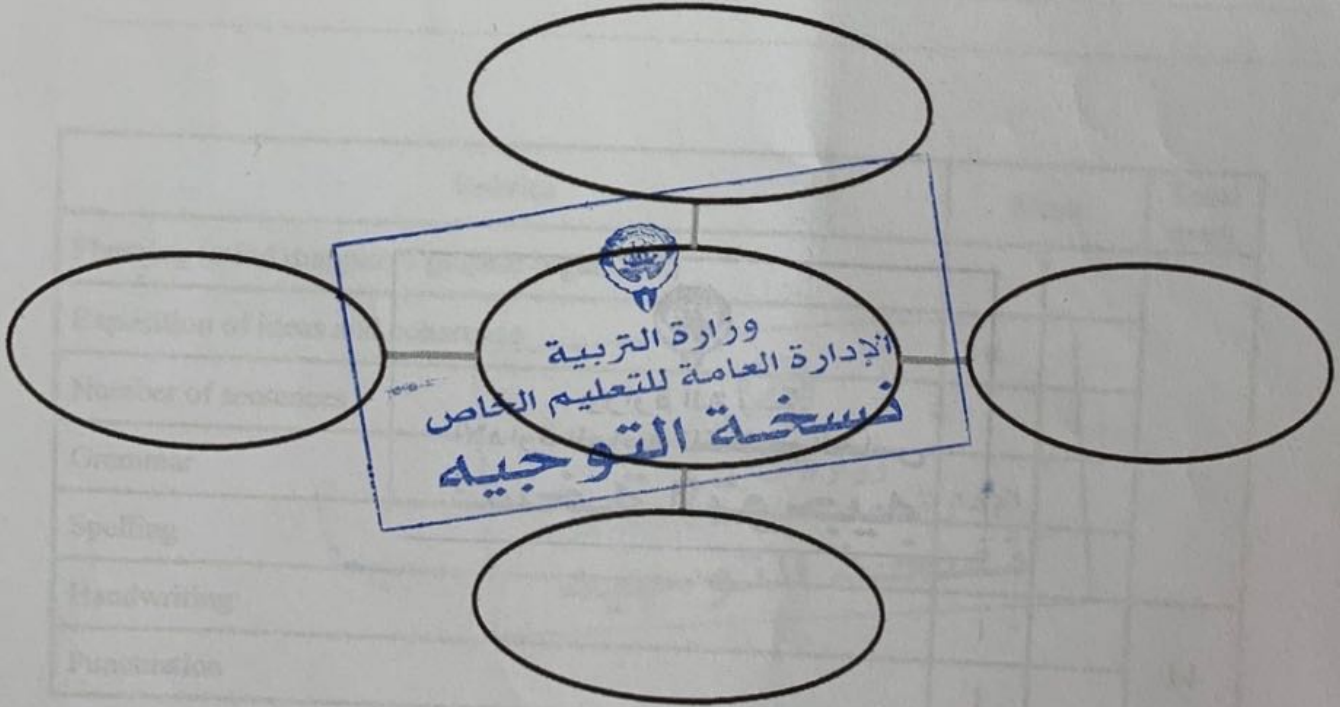 وزارة التربية
الإدارة العامة للتعليم الخاص
نسخة التوجيه
Exposition of ideas and coherence
Number of sentences
Grammar
Spelling
Handwriting
Punctuation